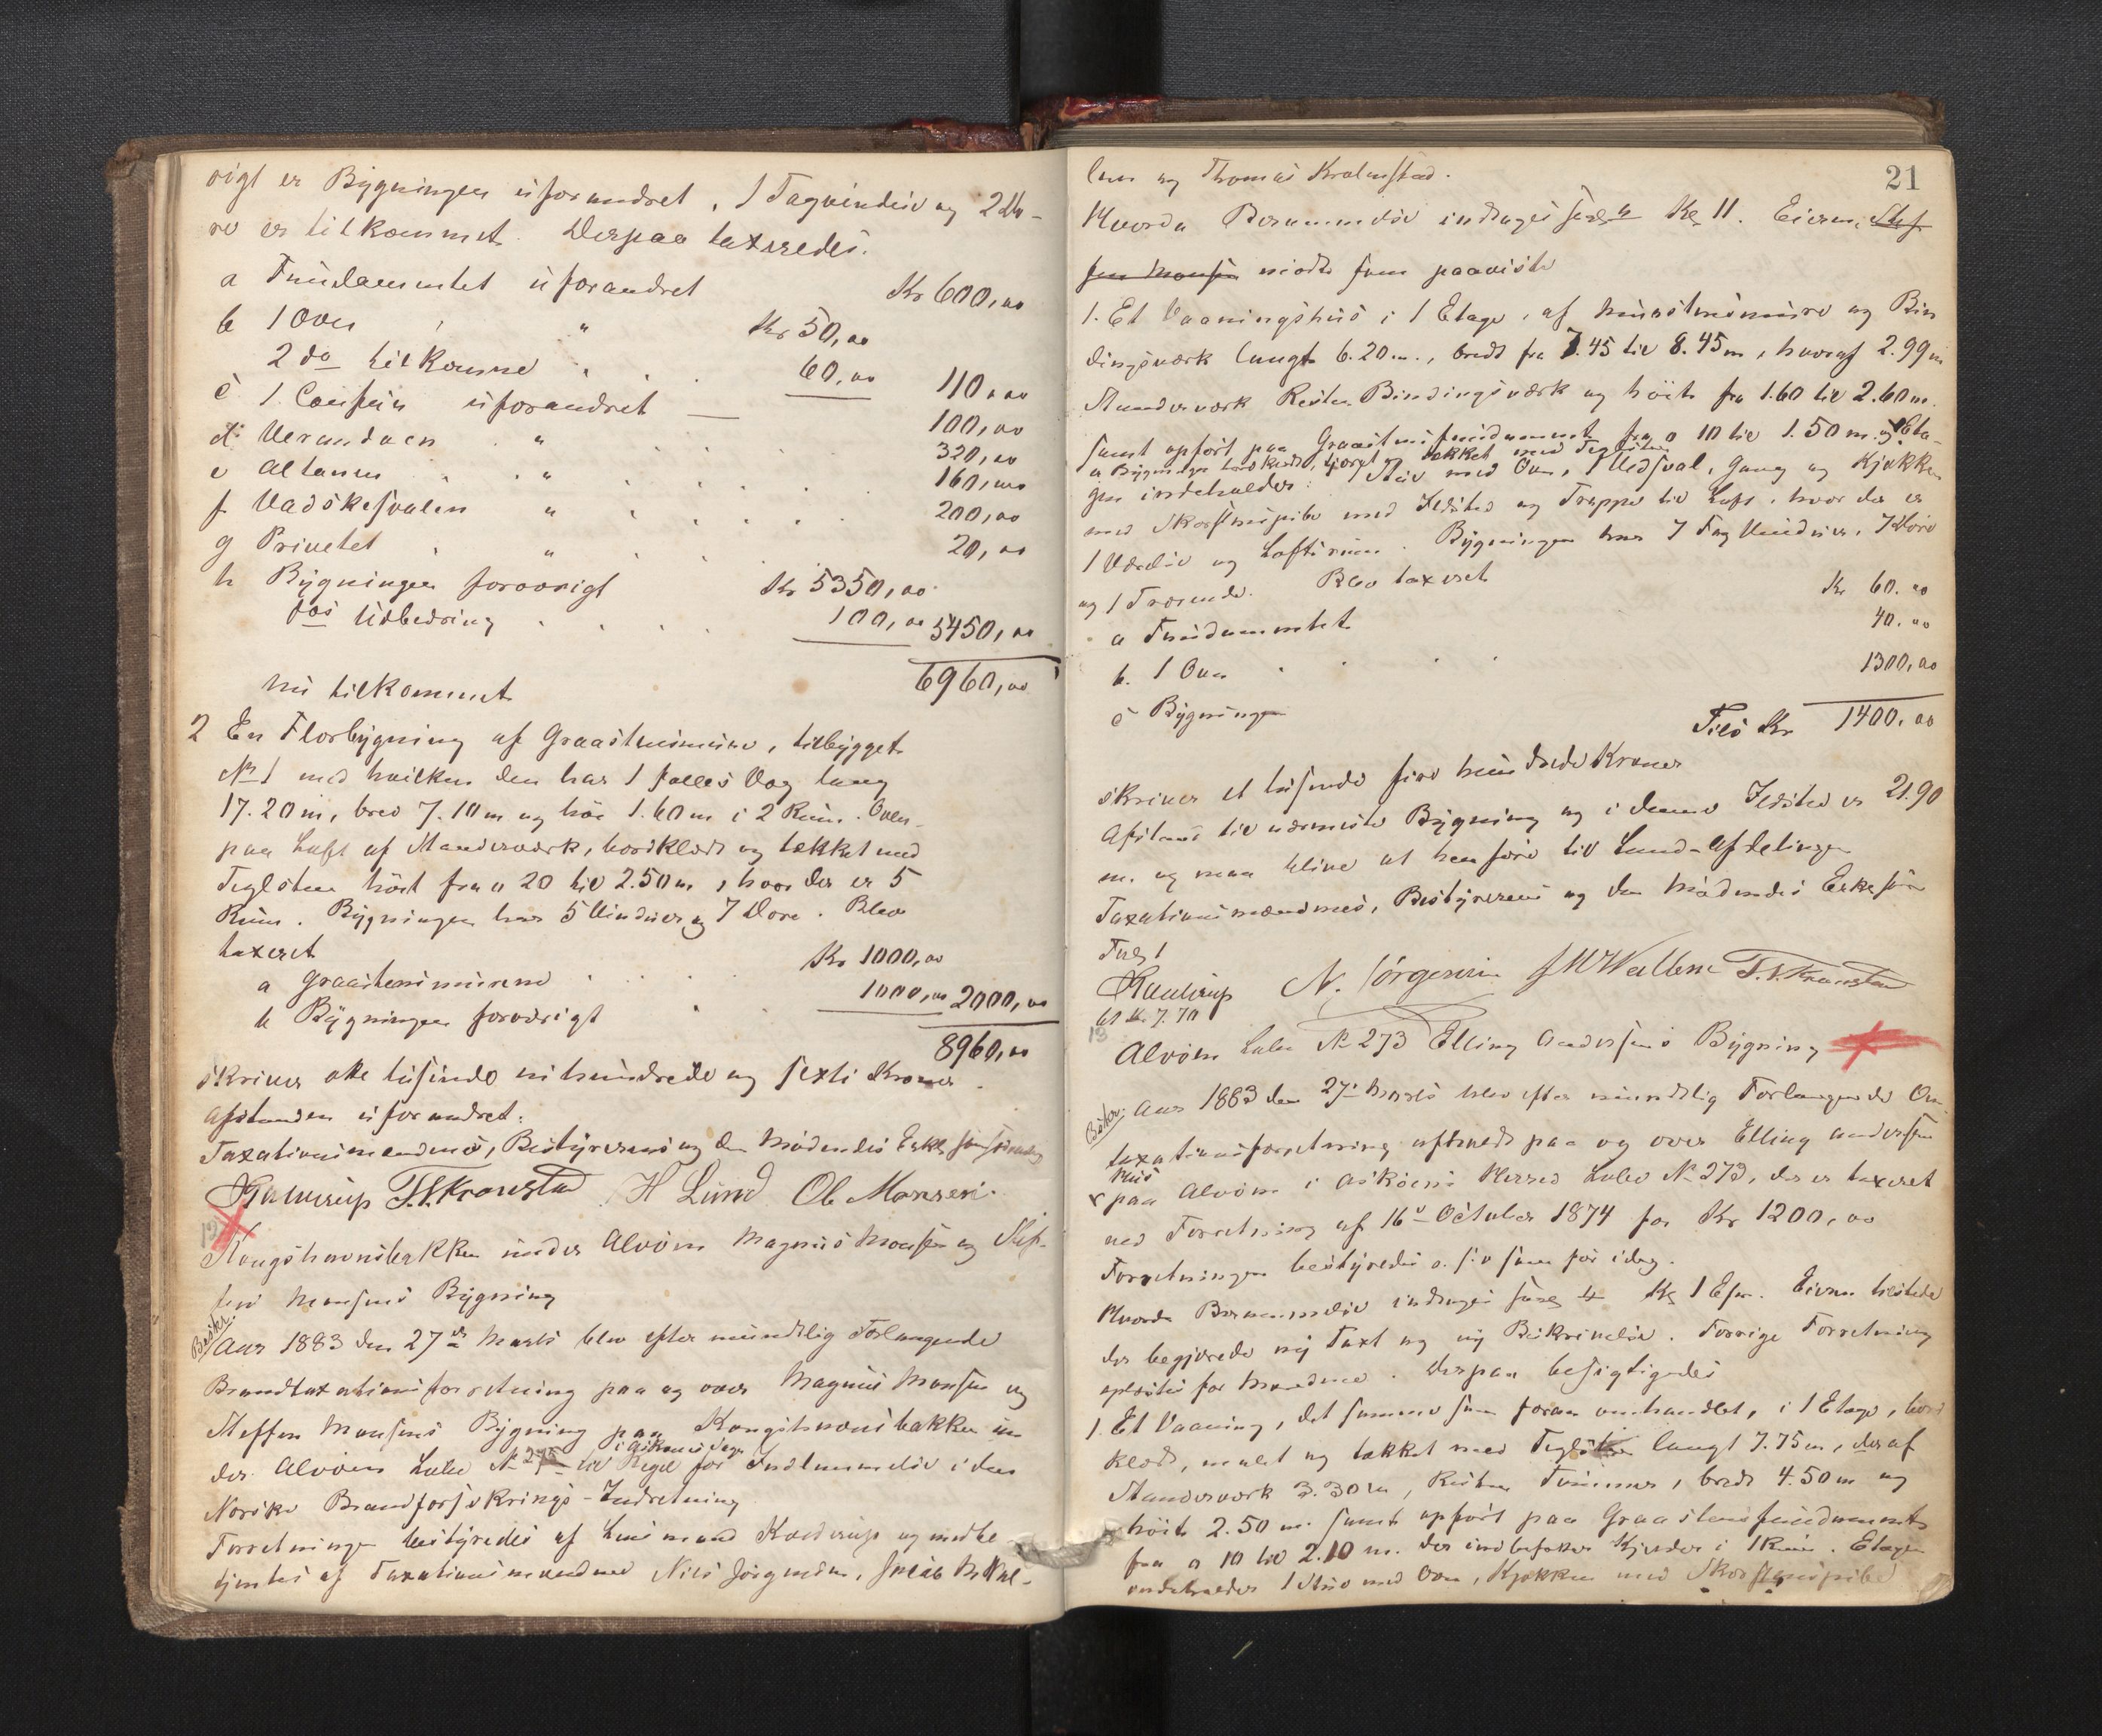 vrigt er Bygningen uforandret, 1 Tagvindue og 2 Dø-
re er tilkommet. Derpaa taxeredes.
a Fundamentet uforandret Kr 600,00
b 1 Oven " Kr 50,00
2 do tilkomne 60,00 110,00
c 1 Comfur uforandret 100,00
d Verandaen " 320,00
e Altanen " 160,00
f Vadskesvalen " 200,00
g Privetet " 20,00
h Bygningen forøvrigt Kr 5350,00
Udbedring 100,00 5450,00
6960,00
nu tilkommet
2 En Florbygning af Graastensmure, tilbygget
No 1 med hvilken den har 1 fælles Væg lang
17.20 m, bred 7.10 m og høi 1.60 m i 2 Rum. Oven-
paa Loft af Standerværk, bordklædt og tækket med
Teglsten høit fra 0 20 til 2.50 m, hvor der er 5
Rum. Bygningen har 5 Vinduer og 7 Døre. Blev
taxeret
a Graastensmurene Kr 1000,00
b Bygningen forøvrigt 1000,00 2000,00
8960,00
skriver otte tusinde nihundrede og sexti Kroner.
Afstanden uforandret.
Taxationsmændenes, Bestyrerens og den Mødendes Eskefor
Kaldrup T. T. Kronstad H Lund Ole Monsen.
19
Kongshavnsbakken under Alvøen Magnus Monsen og Stef-
fen Monsens Bygning
Beskr.
Aar 1883 den 27de Marts blev efter mundtlig Forlangende
Brandtaxationsforretning paa og over Magnus Monsen og
Steffen Monsens Bygning paa Kongshavnsbakken un-
i Askøens Sogn
der Alvøen Løbe No 275 til Regel for Indlemmelse i den
Norske Brandforsikrings-Indretning
Forretningen bestyredes af Lensmand Kaldrup og medbe-
tjentes af Taxationsmændene Nils Jørgensen, Jakob M Wal-
21
lem og Thomas Kralmstad.
Hvorda Berammelse indtages Kl 11. Eierne Stef
fen Monsen mødte som paaviste
1. Et Vaaningshus i 1 Etage, af Murstensmure og Bin
dingsværk langt 6.20 m., bredt fra 7.45 til 8.45 m, hvoraf 2.99 m
Standerværk Resten Bindingsværk og høit fra 1.60 til 2.60 m.
samt opført paa Graastensfundament fra 0 10 til 1.50 m. Eta-
Bygningen bordklædt, tjæret og tækket med Teglsten
gen indeholder: 1 Stue med Oven, 1 Vedsval, Gang og Kjøkken
med Skorstenspibe med Ildsted og Trappe til Loft, hvor der er
1 Værelse og Loftsrum. Bygningen har 7 Fag Vinduer, 7 Døre
og 1 Trærende. Blev taxeret
a Fundamentet Kr 60.00
b. 1 Oven 40.00
c Bygningen 1300,00
Tils Kr 1400,00
skriver et tusinde fire hundrede Kroner
Afstand til nærmeste Bygning og i denne Ildsted er 21.90
m. og maa blive at henføre til Land-Afdelingen
Taxationsmændenes, Bestyrerens og den Mødendes Eskefor
Kaldrup N. Jørgensen J M Wallem T. T. Kronstad
19
Alvøen Løbe No 273 Elling Andersens Bygning
Beskr.
Aar 1883 den 27de Marts blev efter mundtlig Forlangende Om
taxationsforretning afholdt paa og over Elling Andersens
Hus
paa Alvøen i Askøens Herred Løbe No 273, der er taxeret
ved Forretning af 16de October 1874 for Kr 1200,00
Forretningen bestyredes o. s. v som før idag.
Hvorda Berammelse indtages Kl 1 Efm. Eieren tilstede
der begjærede ny Taxt og ny Beskrivelse. Forrige Forretning
oplæstes for Mændene. Derpaa besigtigedes
1. Et Vaaning, det samme som foran omhandlet, i 1 Etage, bord
klædt, malet og tækket med Teglsten langt 7.75 m, deraf
Standerværk 3.30 m, Resten Tømmer, bredt 4.50 m og
høit 2.50 m. samt opført paa Graastensfundament
fra 0 10 til 2.10 m. der indbefatter Kjælder i 1 Rum. Etagen
indeholder 1 Stue med Oven, Kjøkken med Skorstenspibe